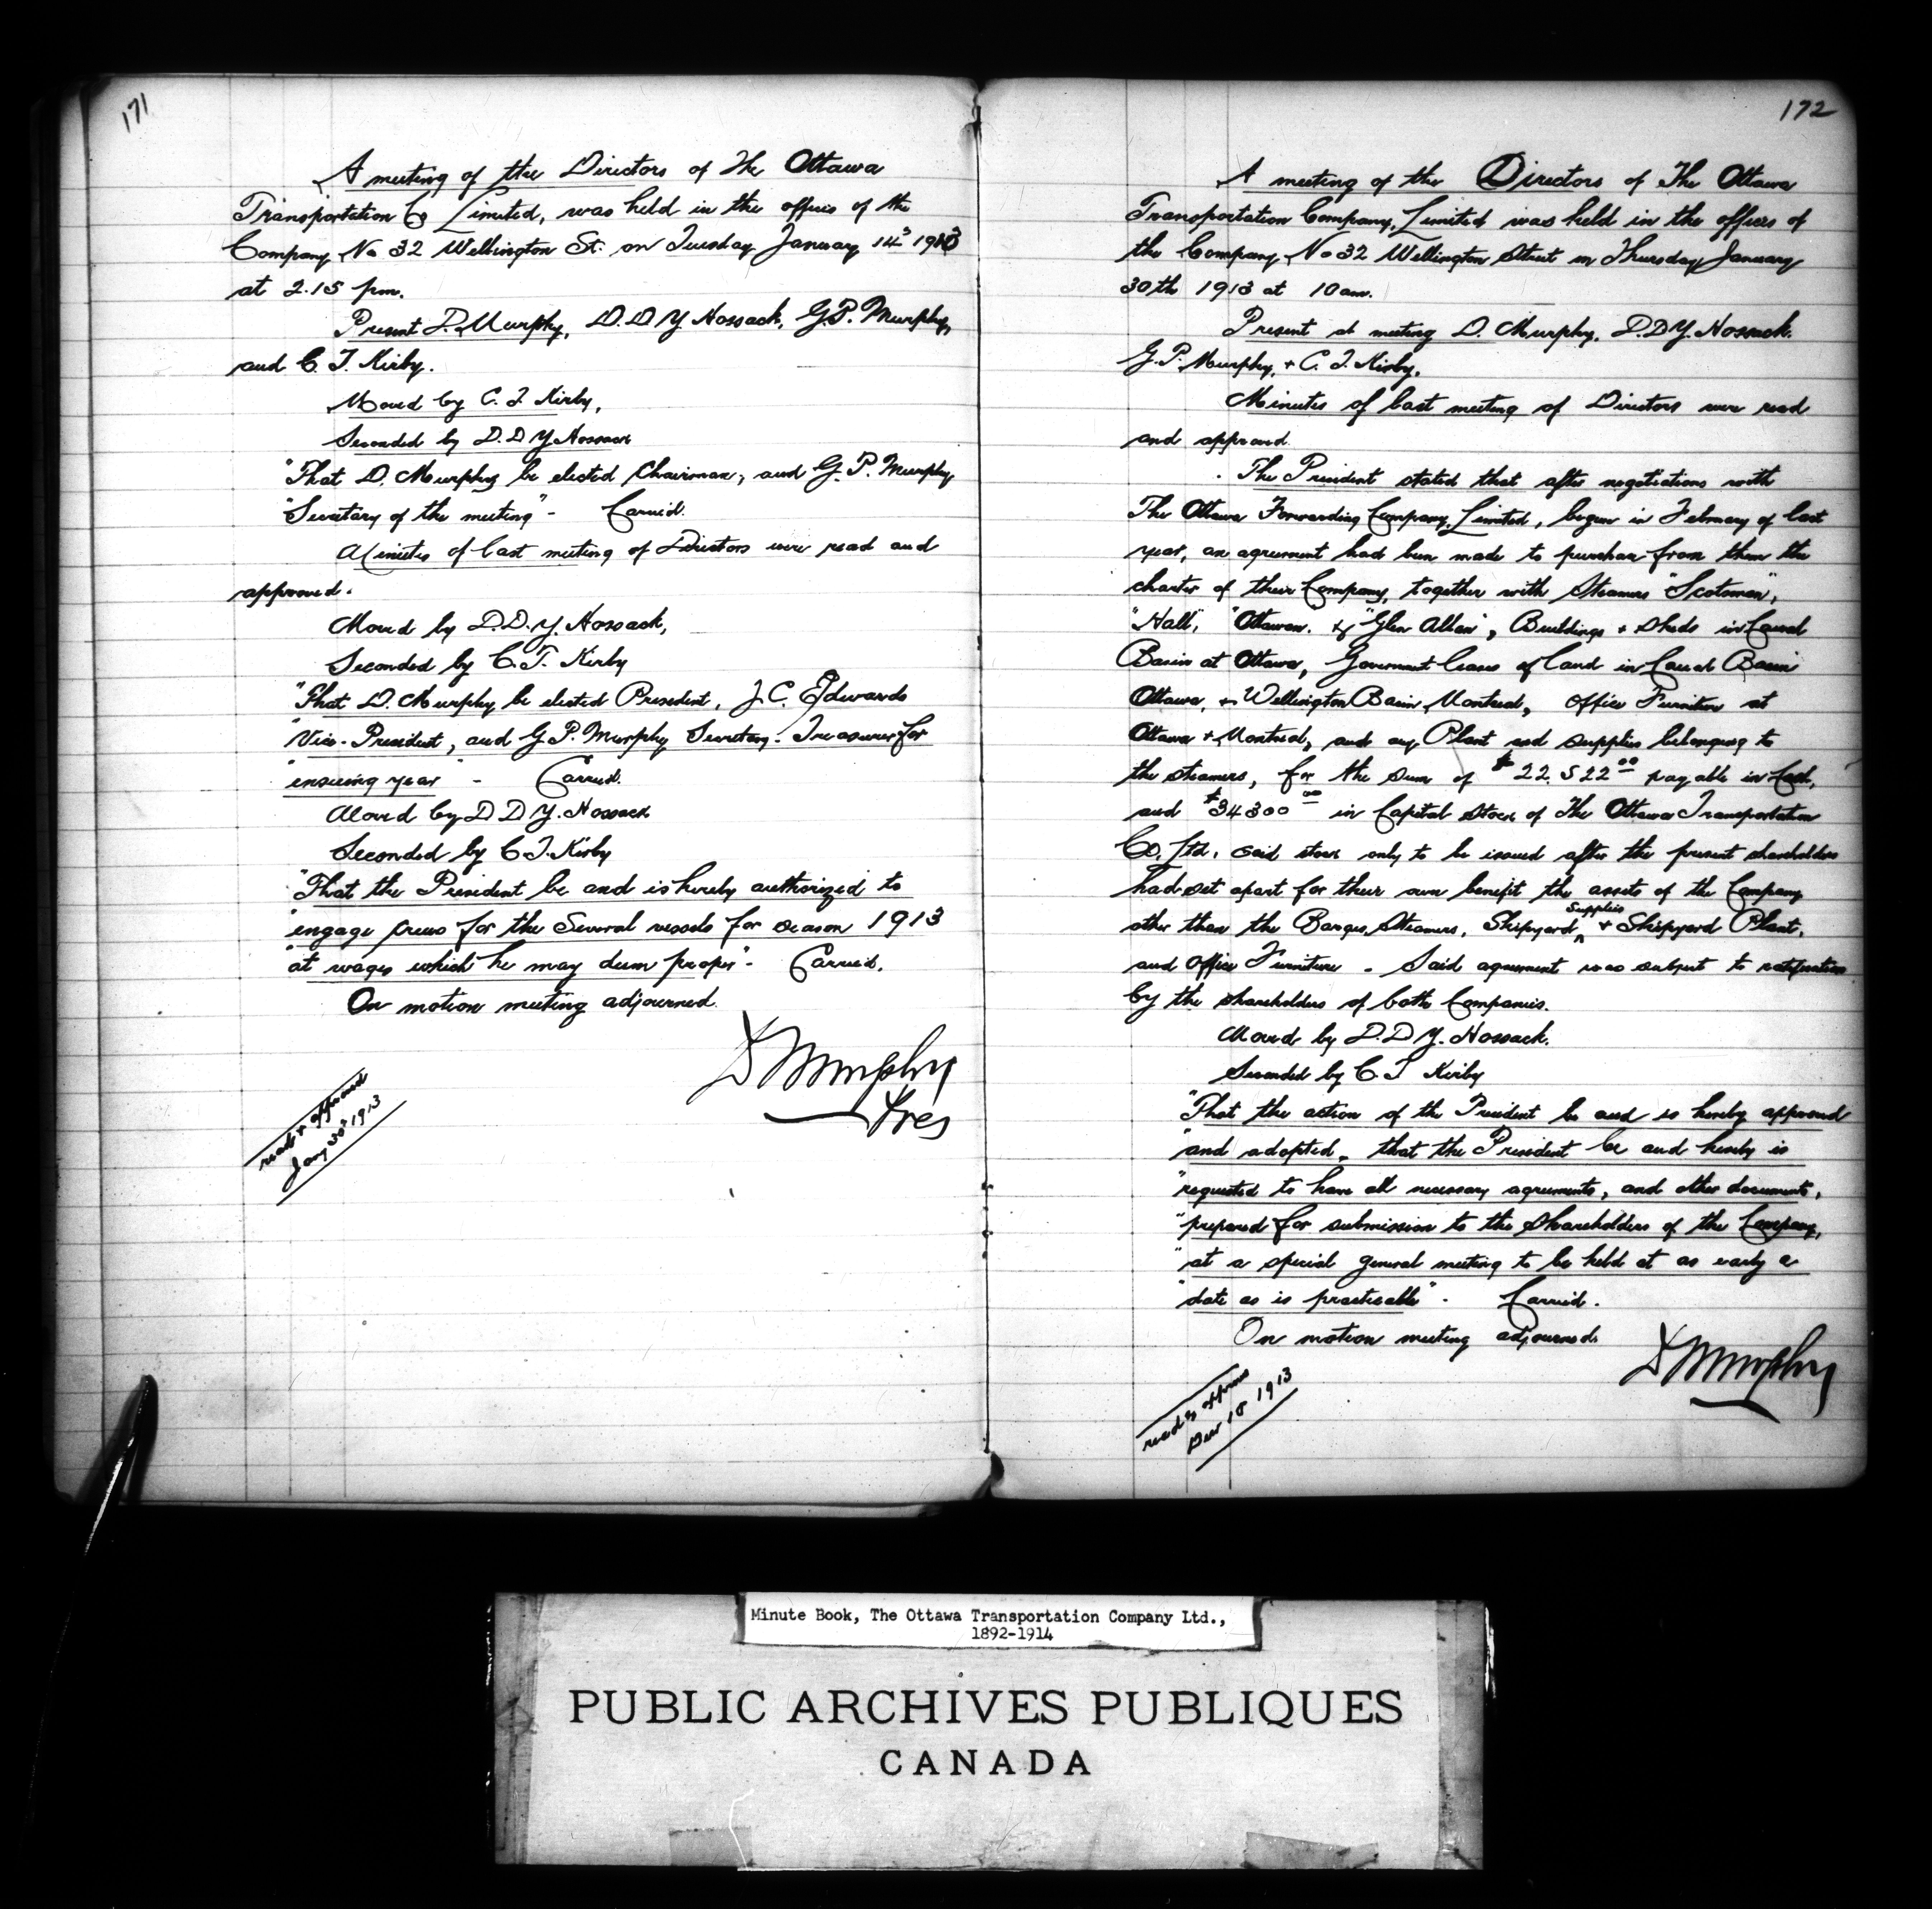 171
A meeting of the Directors of The Ottawa
Transportation Co Limited, was held in the offices of the
Company No 32 Wellington St. on Tuesday January 14th 1913
at 2.15 pm.
Present D. Murphy, D.D Y Hossack, G.P. Murphy,
and C. T. Kirby.
Moved by C. T Kirby,
Seconded by D. D Y Hossack
"That D. Murphy be elected Chairman, and G. P. Murphy
"Secretary of the meeting" - Carried.
Minutes of last meeting of Directors were read and
approved.
Moved by D.D.Y. Hossack,
Seconded by C. T. Kirby
"That D. Murphy be elected President, J. C. Edwards
"Vice-President, and G P. Murphy Secretary-Treasurer for
"ensuing year" - Carried.
Moved by D D Y. Hossack
Seconded by C T. Kirby
"That the President be and is hereby authorized to
"engage crews for the Several vessels for season 1913
"at wages which he may deem proper" - Carried.
On motion meeting adjourned.
D Murphy
Pres
read & approved
Jany 30th 1913
172
A meeting of the Directors of The Ottawa
Transportation Company, Limited was held in the offices of
the Company, No 32 Wellington Street on Thursday January
30th 1913 at 10 am.
Present at meeting D. Murphy, D.D Y. Hossack.
G. P. Murphy, + C. T. Kirby.
Minutes of last meeting of Directors were read
and approved.
The President stated that after negotiations with
The Ottawa Forwarding Company, Limited, begun in February of last
year, an agreement had been made to purchase from them the
charter of their Company, together with Steamers "Scotsman",
"Hall", "Ottawan. & "Glen Allan", Buildings + Sheds in Canal
Basin at Ottawa, Government leases of land in Canal Basin
Ottawa, + Wellington Basin Montreal, Office Furniture at
Ottawa + Montreal, and any Plant and supplies belonging to
the steamers, for the sum of $22,522 00 payable in Cash,
and $34300 00 in Capital Stock of The Ottawa Transportation
Co. Ltd. said stock only to be issued after the present shareholders
had set apart for their own benefit the assets of the Company
other than the Barges, Steamers, Shipyard Supplies + Shipyard Plant,
and Office Furniture. Said agreement was subject to ratification
by the shareholders of both Companies.
Moved by D.D Y. Hossack.
Seconded by C. T Kirby
"That the action of the President be and is hereby approved
"and adopted, that the President be and hereby is
"requested to have all necessary agreements, and other documents,
"prepared for submission to the Shareholders of the Company,
"at a special general meeting to be held at as early a
"date as is practicable" - Carried.
On motion meeting adjourned.
D Murphy
read & approved
Dec 18 1913
Minute Book, The Ottawa Transportation Company Ltd.,
1892-1914
PUBLIC ARCHIVES PUBLIQUES
CANADA